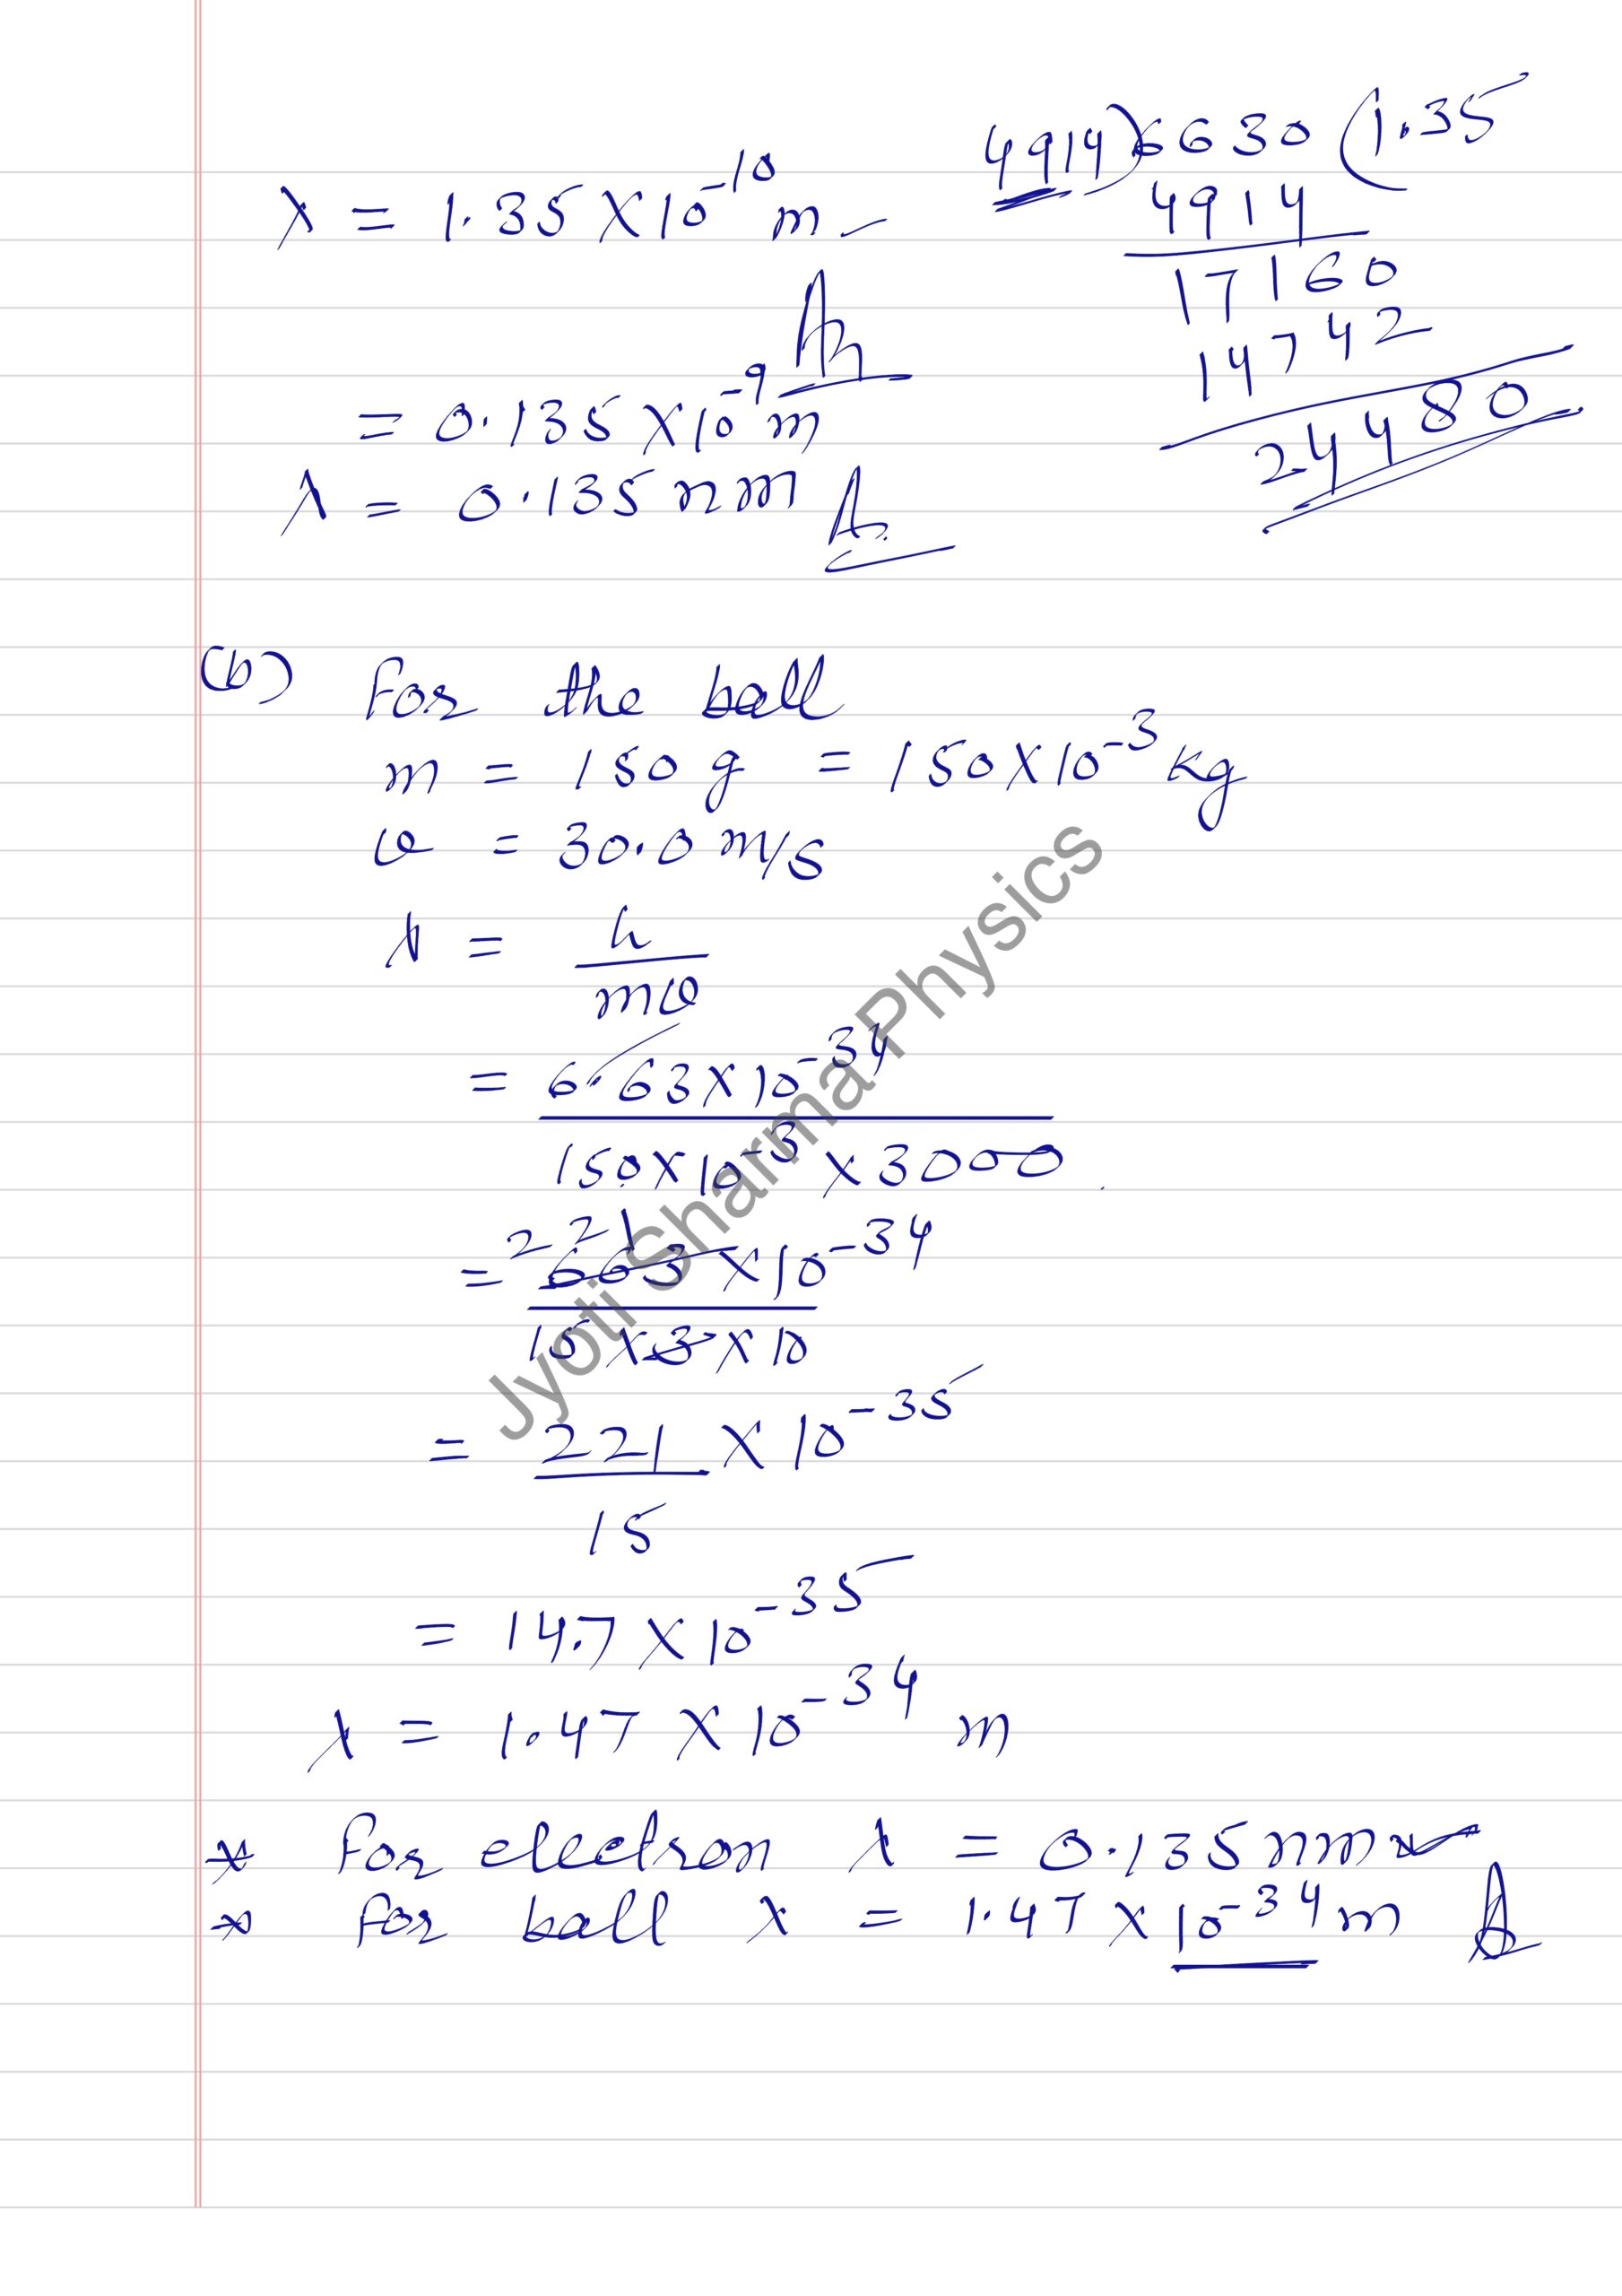 λ = 1.35 × 10⁻¹⁰ m
4914) 6630 (1.35
4914
17160
14742
24480
= 0.135 × 10⁻⁹ m
λ = 0.135 nm
(b) For the ball
m = 150 g = 150 × 10⁻³ kg
v = 30.0 m/s
λ = h
mv
= 6.63 × 10⁻³⁴
150 × 10⁻³ × 3000
221
= 663 × 10⁻³⁴
15 × 3 × 10
= 221 × 10⁻³⁵
15
= 14.7 × 10⁻³⁵
λ = 1.47 × 10⁻³⁴ m
* For electron λ = 0.135 nm
* For ball λ = 1.47 × 10⁻³⁴ m
Jyoti Sharma Physics